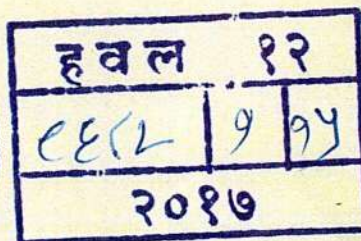 हवल १२
९६८२ १ १५
२०१७